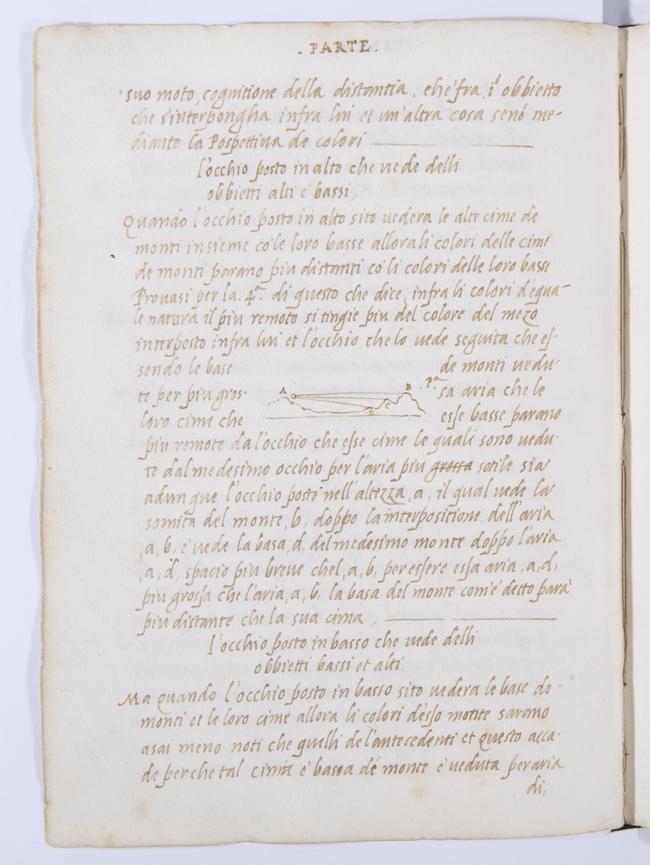 . PARTE .
suo moto, cognitione della distantia, che fra i° obbietto
che s'interpongha infra lui et un'altra cosa senó me-
diante la Pospettiva de colori
l'occhio posto in alto che vede delli
obbietti alti e bassi,
Quando l'occhio posto in alto sito vedera le alte cime de
monti insieme có le loro basse allora li colori delle cime
de monti parano piu distanti có li colori delle loro basse
Provasi per la .4ª. di questo che dice, infra li colori d'equa-
le natura il piu remoto si tingie piu del colore del mezo
interposto infra lui et l'occhio che lo vede seguita che es-
sendo le base de monti vedu-
te per piu gros- A B pª sa aria che le
loro cime che D C esse basse parano
piu remote da l'occhio che esse cime le quali sono vedu-
te dal medesimo occhio per l'aria piu grossa sotile sia
adunque l'occhio posto nell'altezza, a, il qual vede la
somita del monte, b, doppo la interpositione dell'aria
,a, b, e vede la basa, d, del medesimo monte doppo l'aria
,a, d, spacio piu breve chel, a, b, per essere essa aria, a, d,
piu grossa che l'aria, a, b, la basa del monte com'é detto parà
piu distante che la sua cima,
l'occhio posto in basso che vede delli
obbietti bassi et alti
Ma quando l'occhio posto in basso sito vedera le base de
monti et le loro cime allora li colori d'esso monte sarano
asai meno noti che quelli de l'antecedenti et questo acca-
de perche tal cima e bassa dé monte e veduta per aria
di,